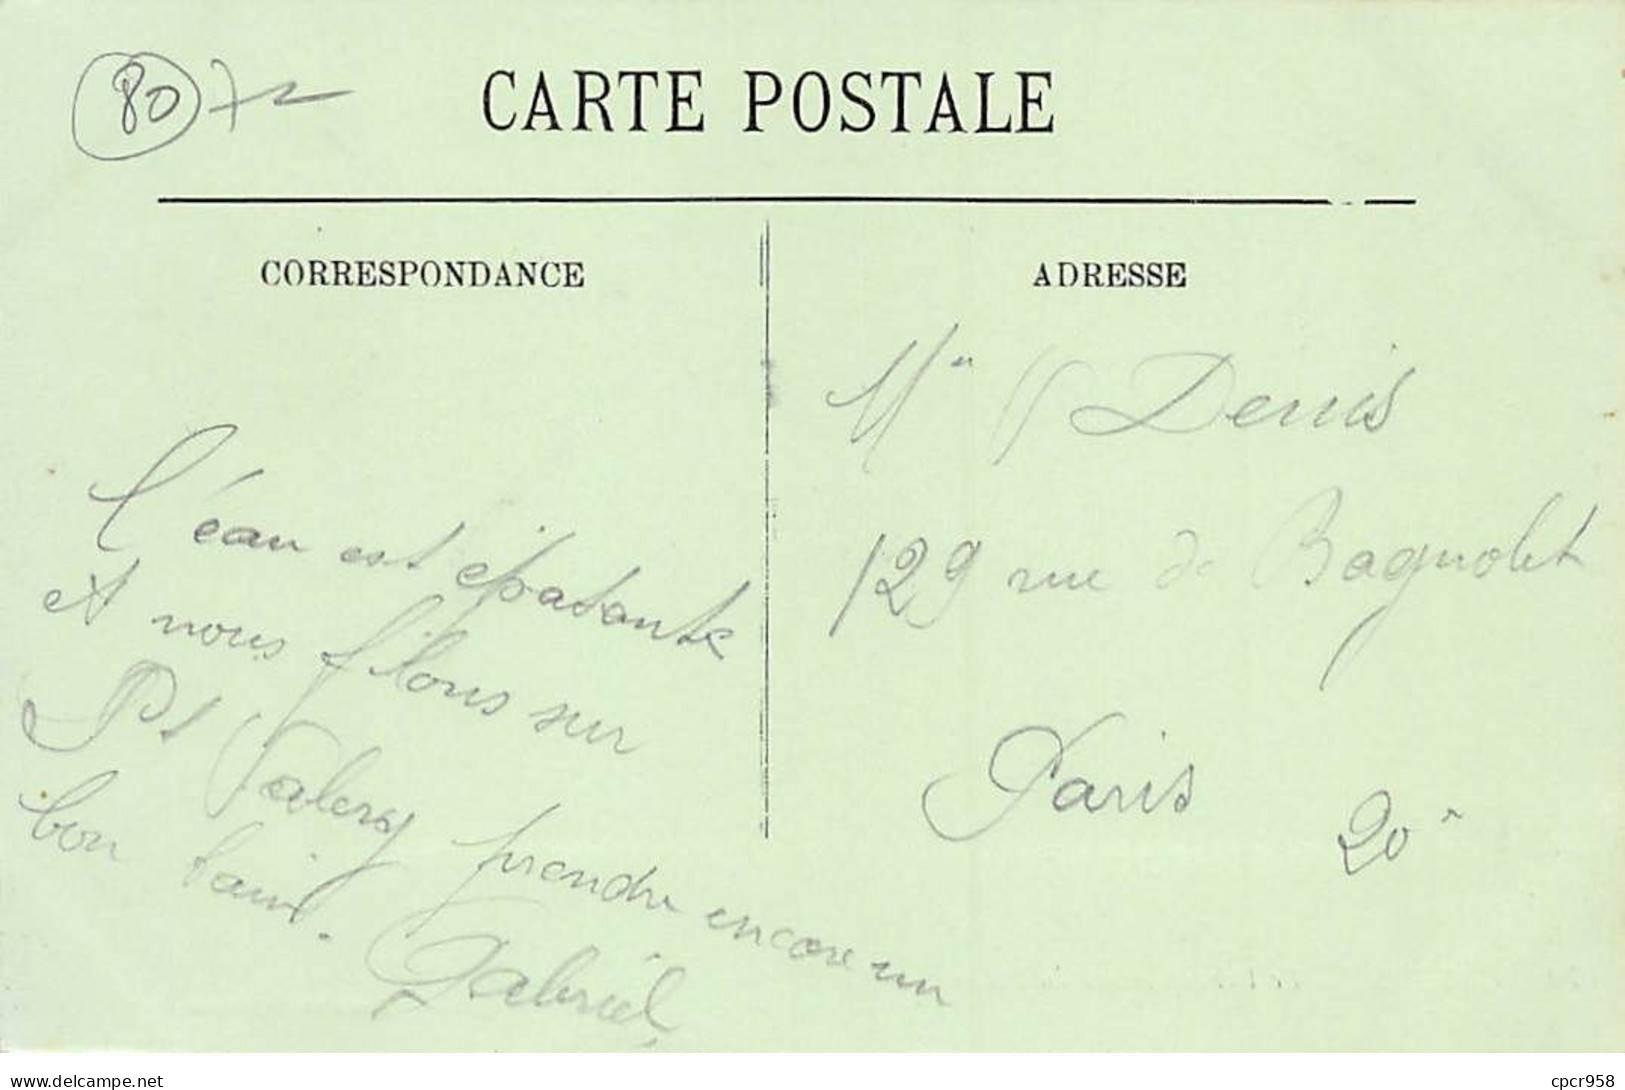 80
CARTE POSTALE
CORRESPONDANCE
L'éau est épatante
et nous filons sur
St Valery prendre encore un
bon bain.
Gabriel
ADRESSE
Mr Denis
129 rue de Bagnolet
Paris
20e
delcampe.net
cpcr958